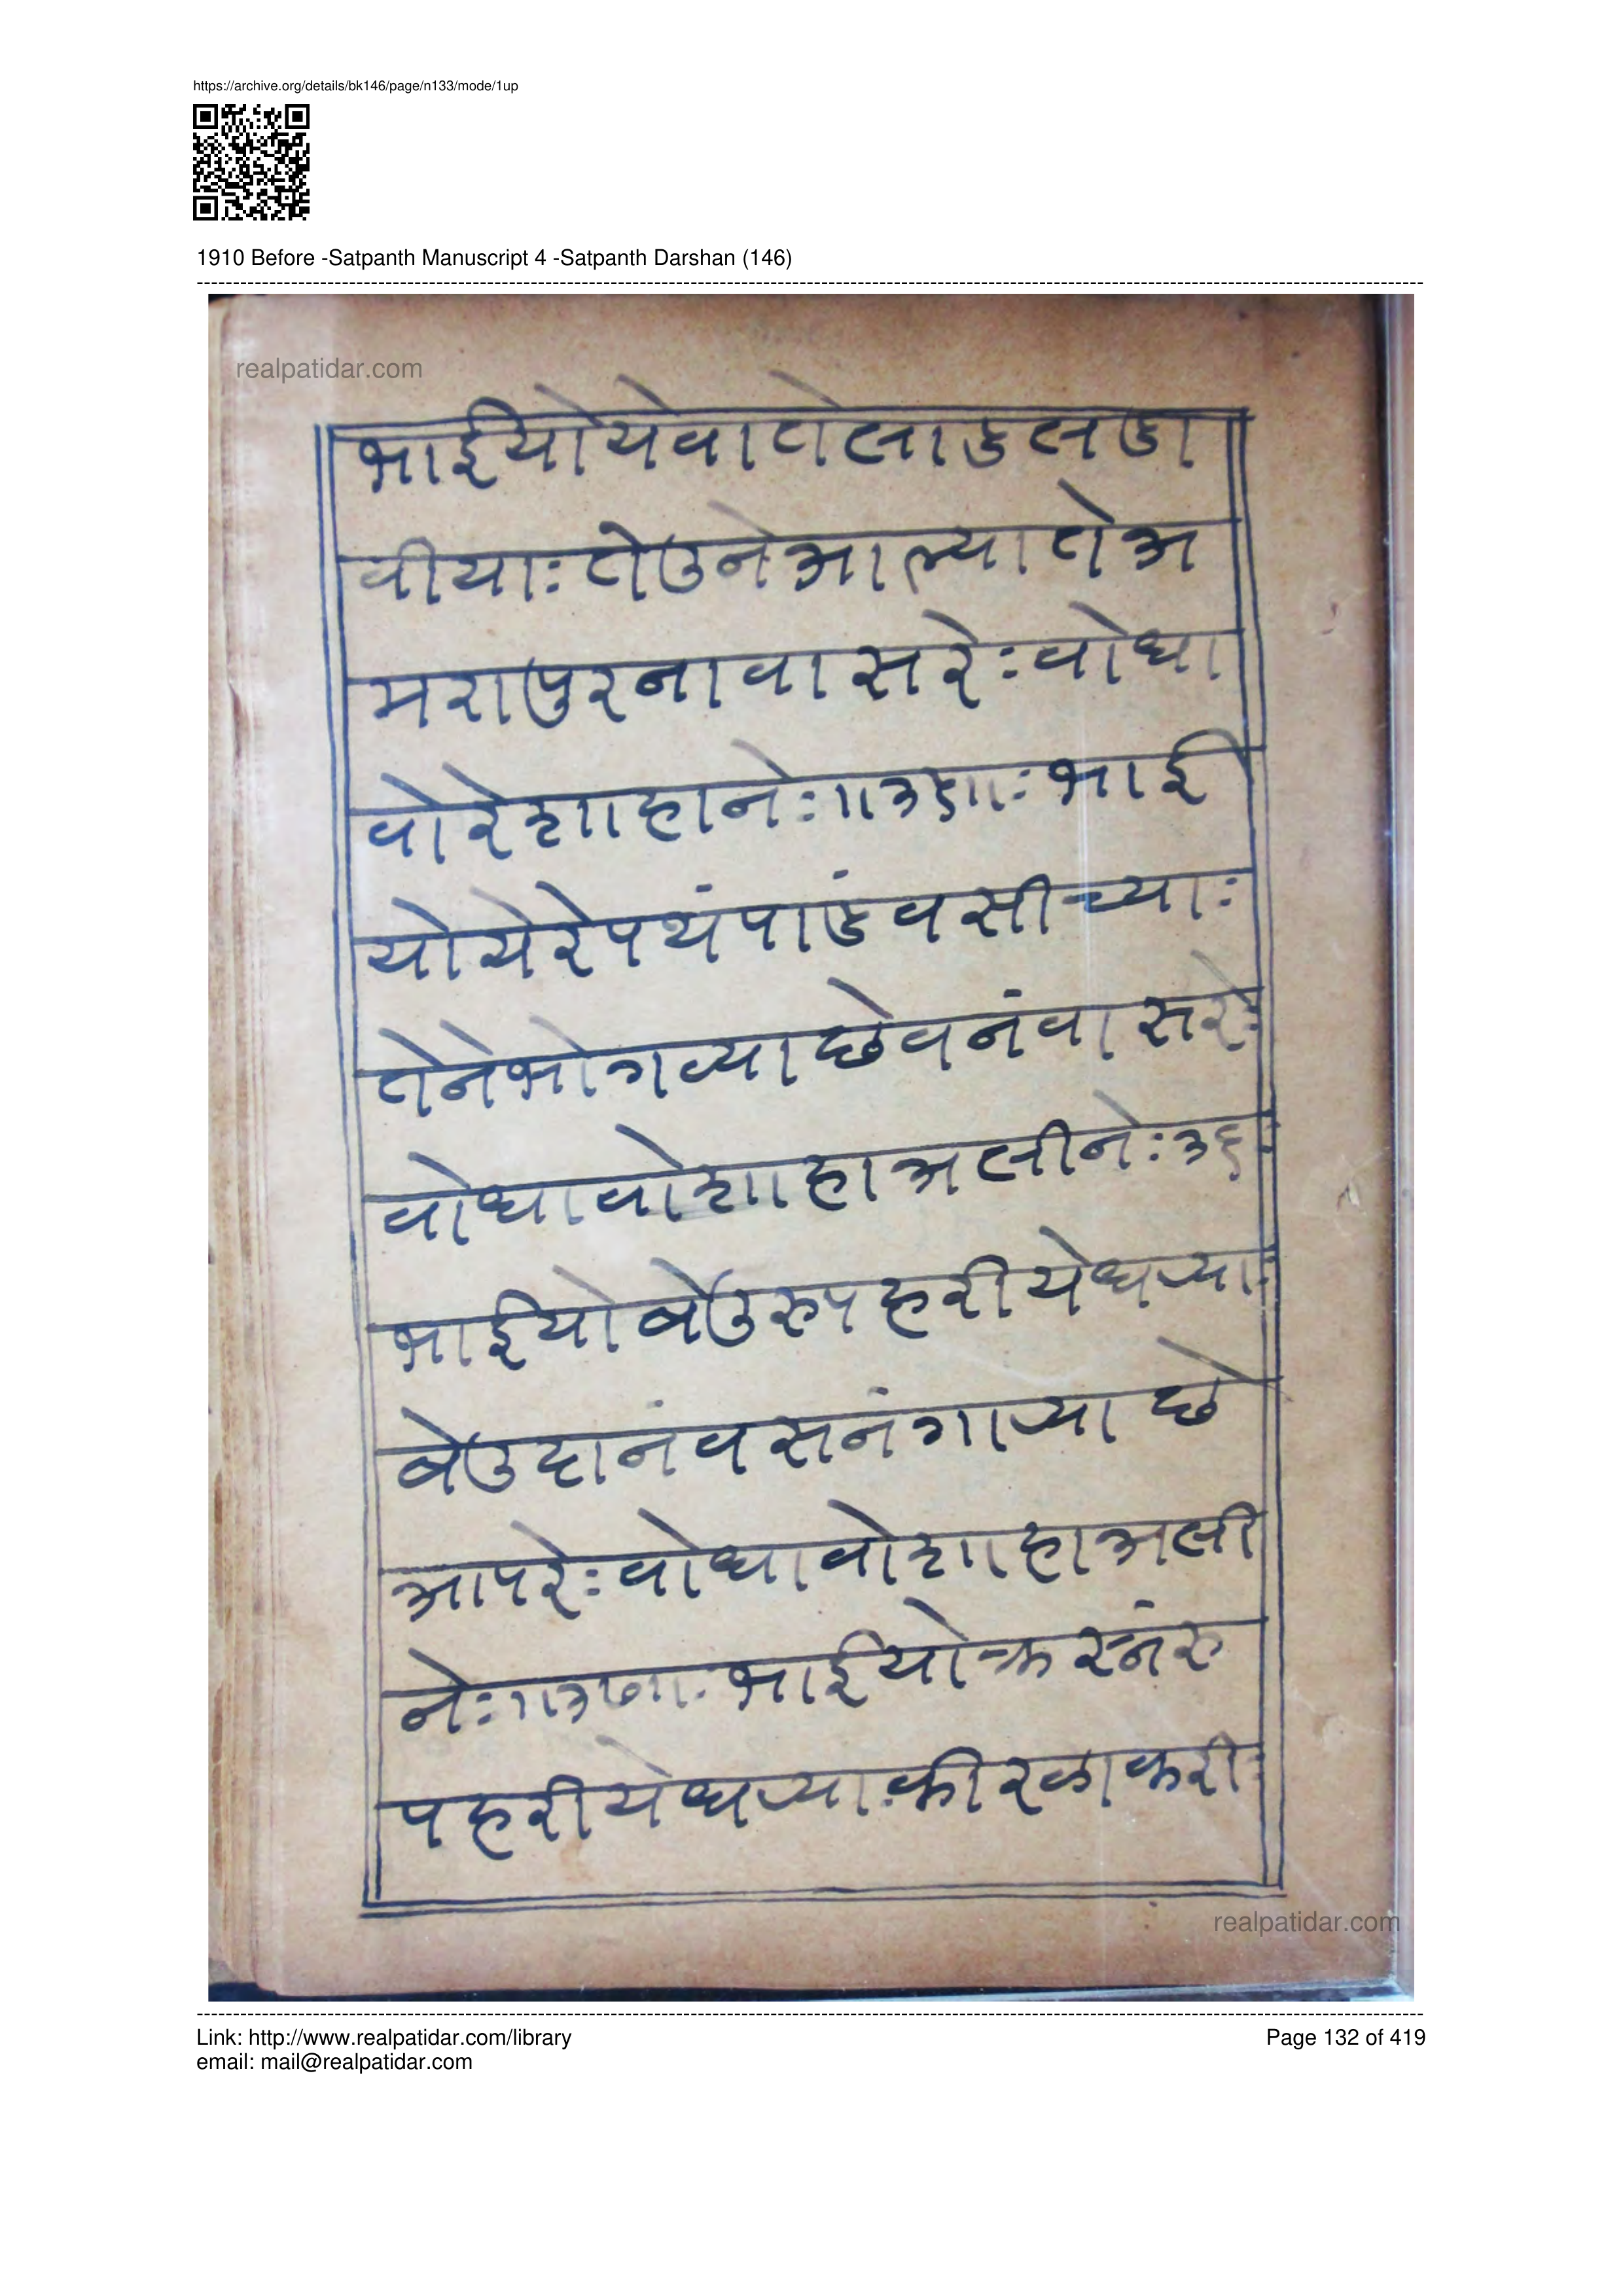 https://archive.org/details/bk146/page/n133/mode/1up
1910 Before -Satpanth Manuscript 4 -Satpanth Darshan (146)
realpatidar.com
भाईयोयेवातेलाडलडा
वीयाः तेउनेआल्यातेअ
मरापुरनावासरेः वोधा
वोरेशाहानेः ॥३५॥ः भाई
योयेरेपथंपाडंवसीच्याः
तेनेभोगव्याछेवनंवासरेः
वोधावोशाहाअलीनेः ३६ः
भाईयोबेउरुपहरीयेधर्‍याः
बेउदानंवसनंगार्‍याछे
आपरेः वोधावोशाहाअली
नेः ॥३७॥ः भाईयोक्रस्नंरु
पहरीयेधर्‍याः कीरळाकरीः
realpatidar.com
Link: http://www.realpatidar.com/library
email: mail@realpatidar.com
Page 132 of 419